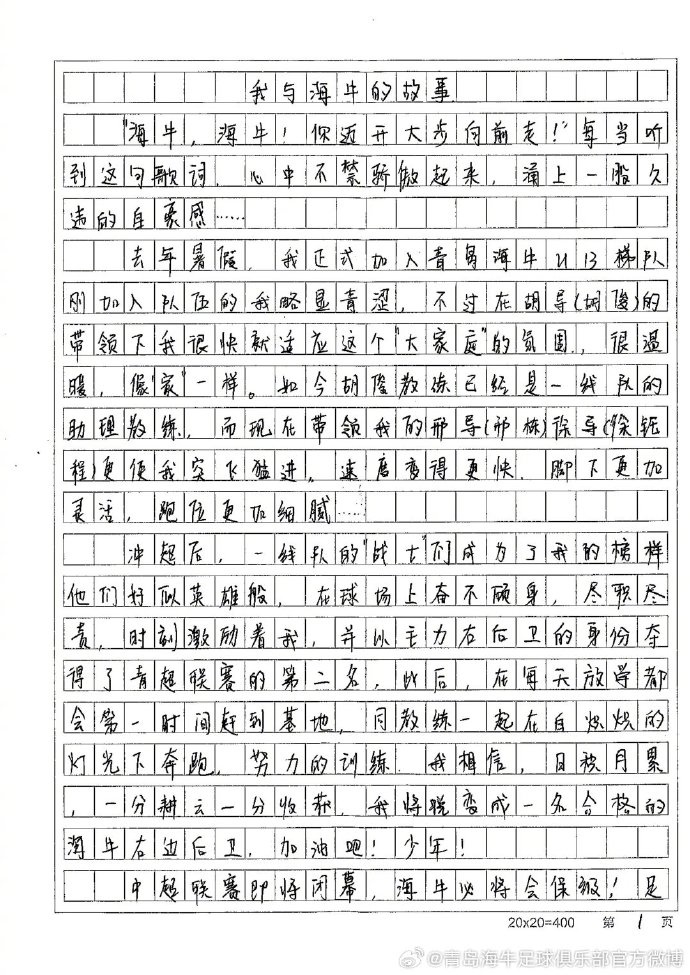 我与海牛的故事
"海牛,海牛!你迈开大步向前走!"每当听
到这句歌词,心中不禁骄傲起来,涌上一股久
违的自豪感……
去年暑假,我正式加入青岛海牛U13梯队
刚加入队伍的我略显青涩,不过在胡导(胡俊)的
带领下我很快就适应这个"大家庭"的氛围,很温
暖,像"家"一样。如今胡俊教练已经是一线队的
助理教练,而现在带领我的邢导(邢栋)徐导(徐钰
程)更使我突飞猛进。速度变得更快,脚下更加
灵活,跑位更加细腻……
冲超后,一线队的"战士"们成为了我的榜样
他们好似英雄般,在球场上奋不顾身,尽职尽
责,时刻激励着我,并以主力右后卫的身份夺
得了青超联赛的第二名,此后,在每天放学都
会第一时间赶到基地,同教练一起在白炽炽的
灯光下奔跑,努力的训练.我相信,日积月累
,一分耕云一分收获,我将蜕变成一名合格的
海牛右边后卫,加油吧!少年!
中超联赛即将闭幕,海牛必将会保级!足
20×20=400 第 1 页
@青岛海牛足球俱乐部官方微博